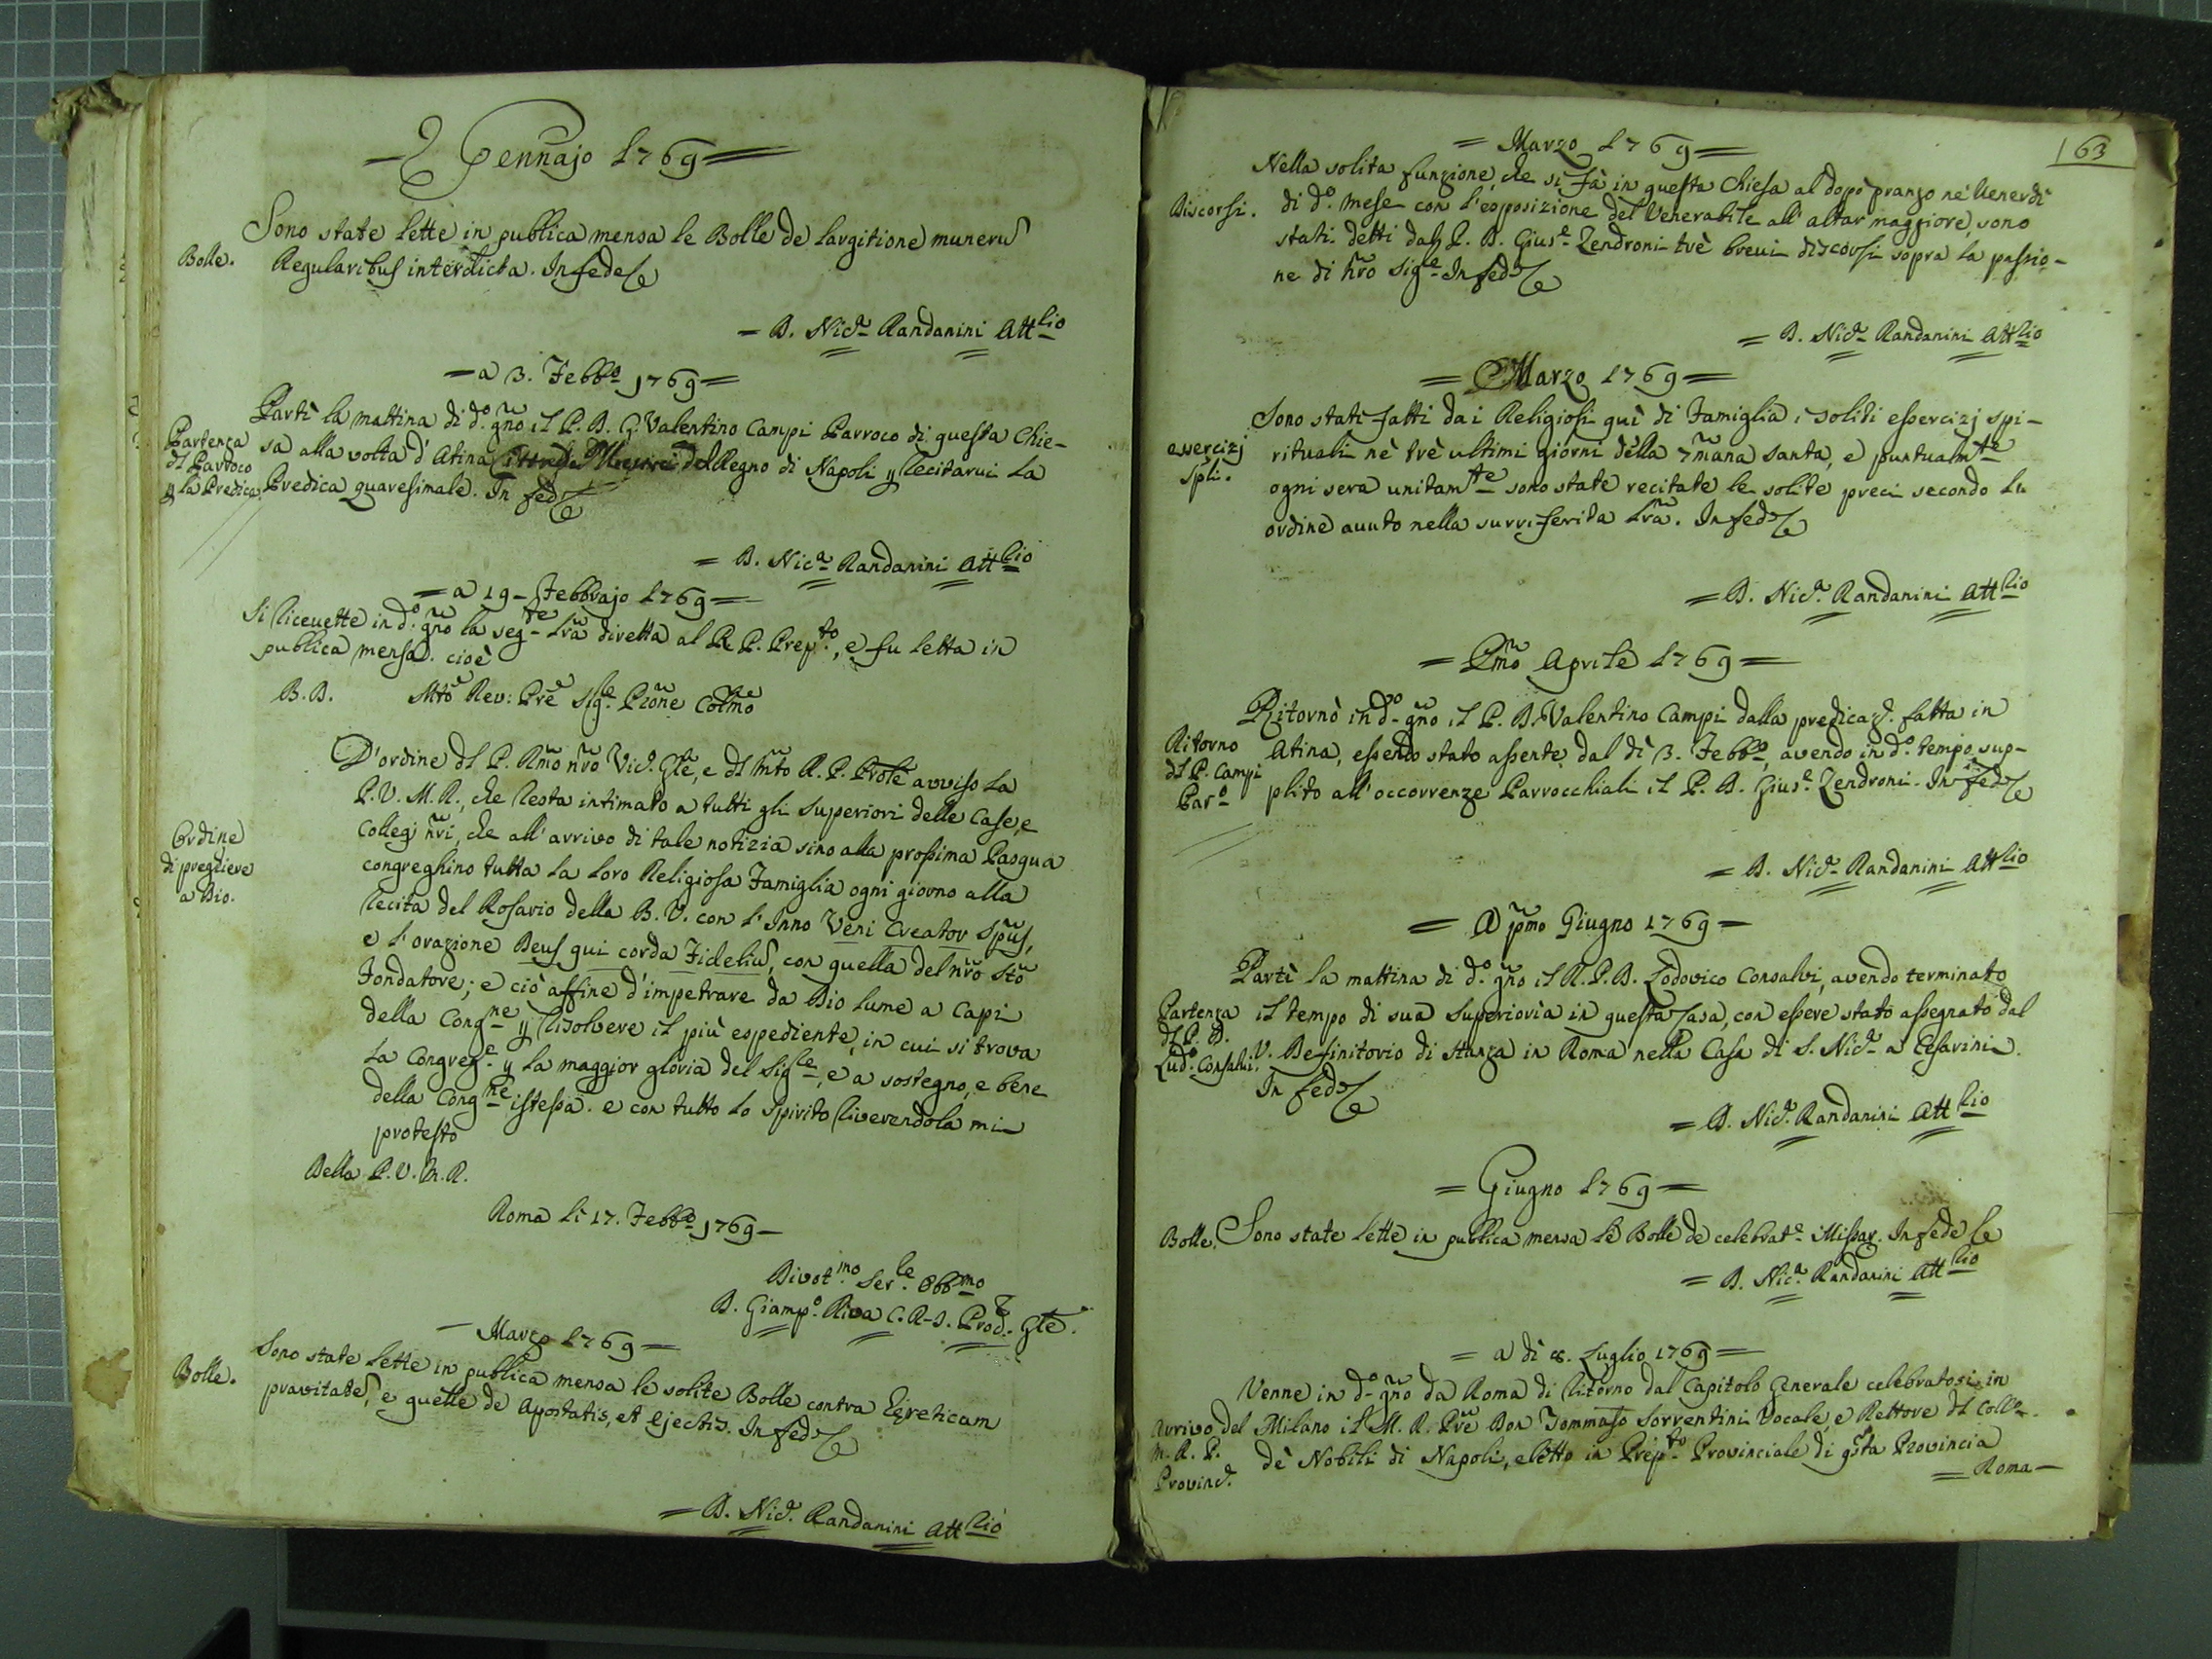 = Gennajo 1769 =
Sono state lette in publica mensa le Bolle de largitione muneru
Bolle. Regularibus interdicta. In fede
= D. Nic.a Randanini Att.rio
= a 3. Febb.o 1769 =
Partì la mattina di d.o gno il P. D. G. Valentino Campi Parroco di questa Chie-
Partenza
dl Parroco
p la Predica
sa alla volta d'Atina del Regno di Napoli p recitarvi la
Predica quaresimale. In fede
= D. Nic.a Randanini Att.rio
= a 19 = Febbrajo 1769 =
Si ricevette in d.o gno la seg.te lra diretta al R. P. Prep.to, e fu letta in
publica mensa. cioè
B.D. Mto Rev: Pre Sig.re Prone Colmo
D'ordine dl P. Rmo nro Vic. Gle, e dl Mto R. P. Prole avviso la
P. V. M. R., che resta intimato a tutti gli Superiori delle Case, e
Collegj nri, che all'arrivo di tale notizia sino alla prossima Pasqua
Ordine
di preghiere
a Dio.
congreghino tutta la loro Religiosa Famiglia ogni giorno alla
recita del Rosario della B. V. con l'Inno Veni Creator Spus,
e l'orazione Deus qui corda Fideliu, con quella del nro Sto
Fondatore; e ciò affine d'impetrare da Dio lume a Capi
della Cong.ne p risolvere il più espediente, in cui si trova
la Congreg.e p la maggior gloria del Sig.re, e a sostegno, e bene
della Cong.ne istessa. e con tutto lo spirito riverendola mi
protesto
Della P. V. M. R.
Roma li 17. Febb.o 1769 =
Divot.mo Ser.re Obb.mo
D. Giamp.o Riva C. R. S. Proc. Gle.
= Marzo 1769 =
Sono state lette in publica mensa le solite Bolle contra Egreticam
Bolle. pravitate, e quelle de Apostatis, et Ejectis. In fede
= D. Nic.a Randanini Att.rio
163
= Marzo 1769 =
Nella solita funzione, che si fà in questa Chiesa al dopo pranzo ne' Venerdì
Discorsi. di d.o mese con l'esposizione del Venerabile all'altar maggiore, sono
stati detti dal P. D. Gius.e Zendroni trè brevi discorsi sopra la passio-
ne di nro Sig.re In fede
= D. Nic.a Randanini Att.rio
= Marzo 1769 =
Sono stati fatti da i Religiosi quì di Famiglia i soliti essercizj spi-
essercizj
spli.
rituali nè trè ultimi giorni della 7mana santa, e puntualm.te
ogni sera unitam.te sono state recitate le solite preci secondo l'
ordine avuto nella surriferita lra. In fede
= D. Nic.a Randanini Att.rio
= Pmo Aprile 1769 =
Ritornò in d.o gno il P. D. Valentino Campi dalla predicaz. fatta in
Ritorno
dl P. Campi
Par.o
Atina, essendo stato assente dal dì 3. Febb.o, avendo in d.o tempo sup-
plito all'occorrenze Parrocchiali il P. D. Gius.e Zendroni. In fede
= D. Nic.a Randanini Att.rio
= A pmo Giugno 1769 =
Partì la mattina di d.o gno il R. P. D. Lodovico Consalvi, avendo terminato
Partenza
dl P. D.
Lud.o Consalvi.
il tempo di sua Superioria in questa Casa, con essere stato assegnato dal
V. Definitorio di stanza in Roma nella Casa di S. Nic.a a Cesarini.
In fede
= D. Nic.a Randanini Att.rio
= Giugno 1769 =
Bolle. Sono state lette in publica mensa le Bolle de celebrat.e Missar. In fede
= D. Nic.a Randanini Att.rio
= a dì 8. Luglio 1769 =
Venne in d.o gno da Roma di ritorno dal Capitolo Generale celebratosi in
Arrivo del
M. R. P.
Provinc.
Milano il M. R. Pre Don Tommaso Sorrentini Vocale, e Rettore dl Coll.o
dè Nobili di Napoli, eletto in Prep.to Provinciale di qsta Provincia
= Roma =